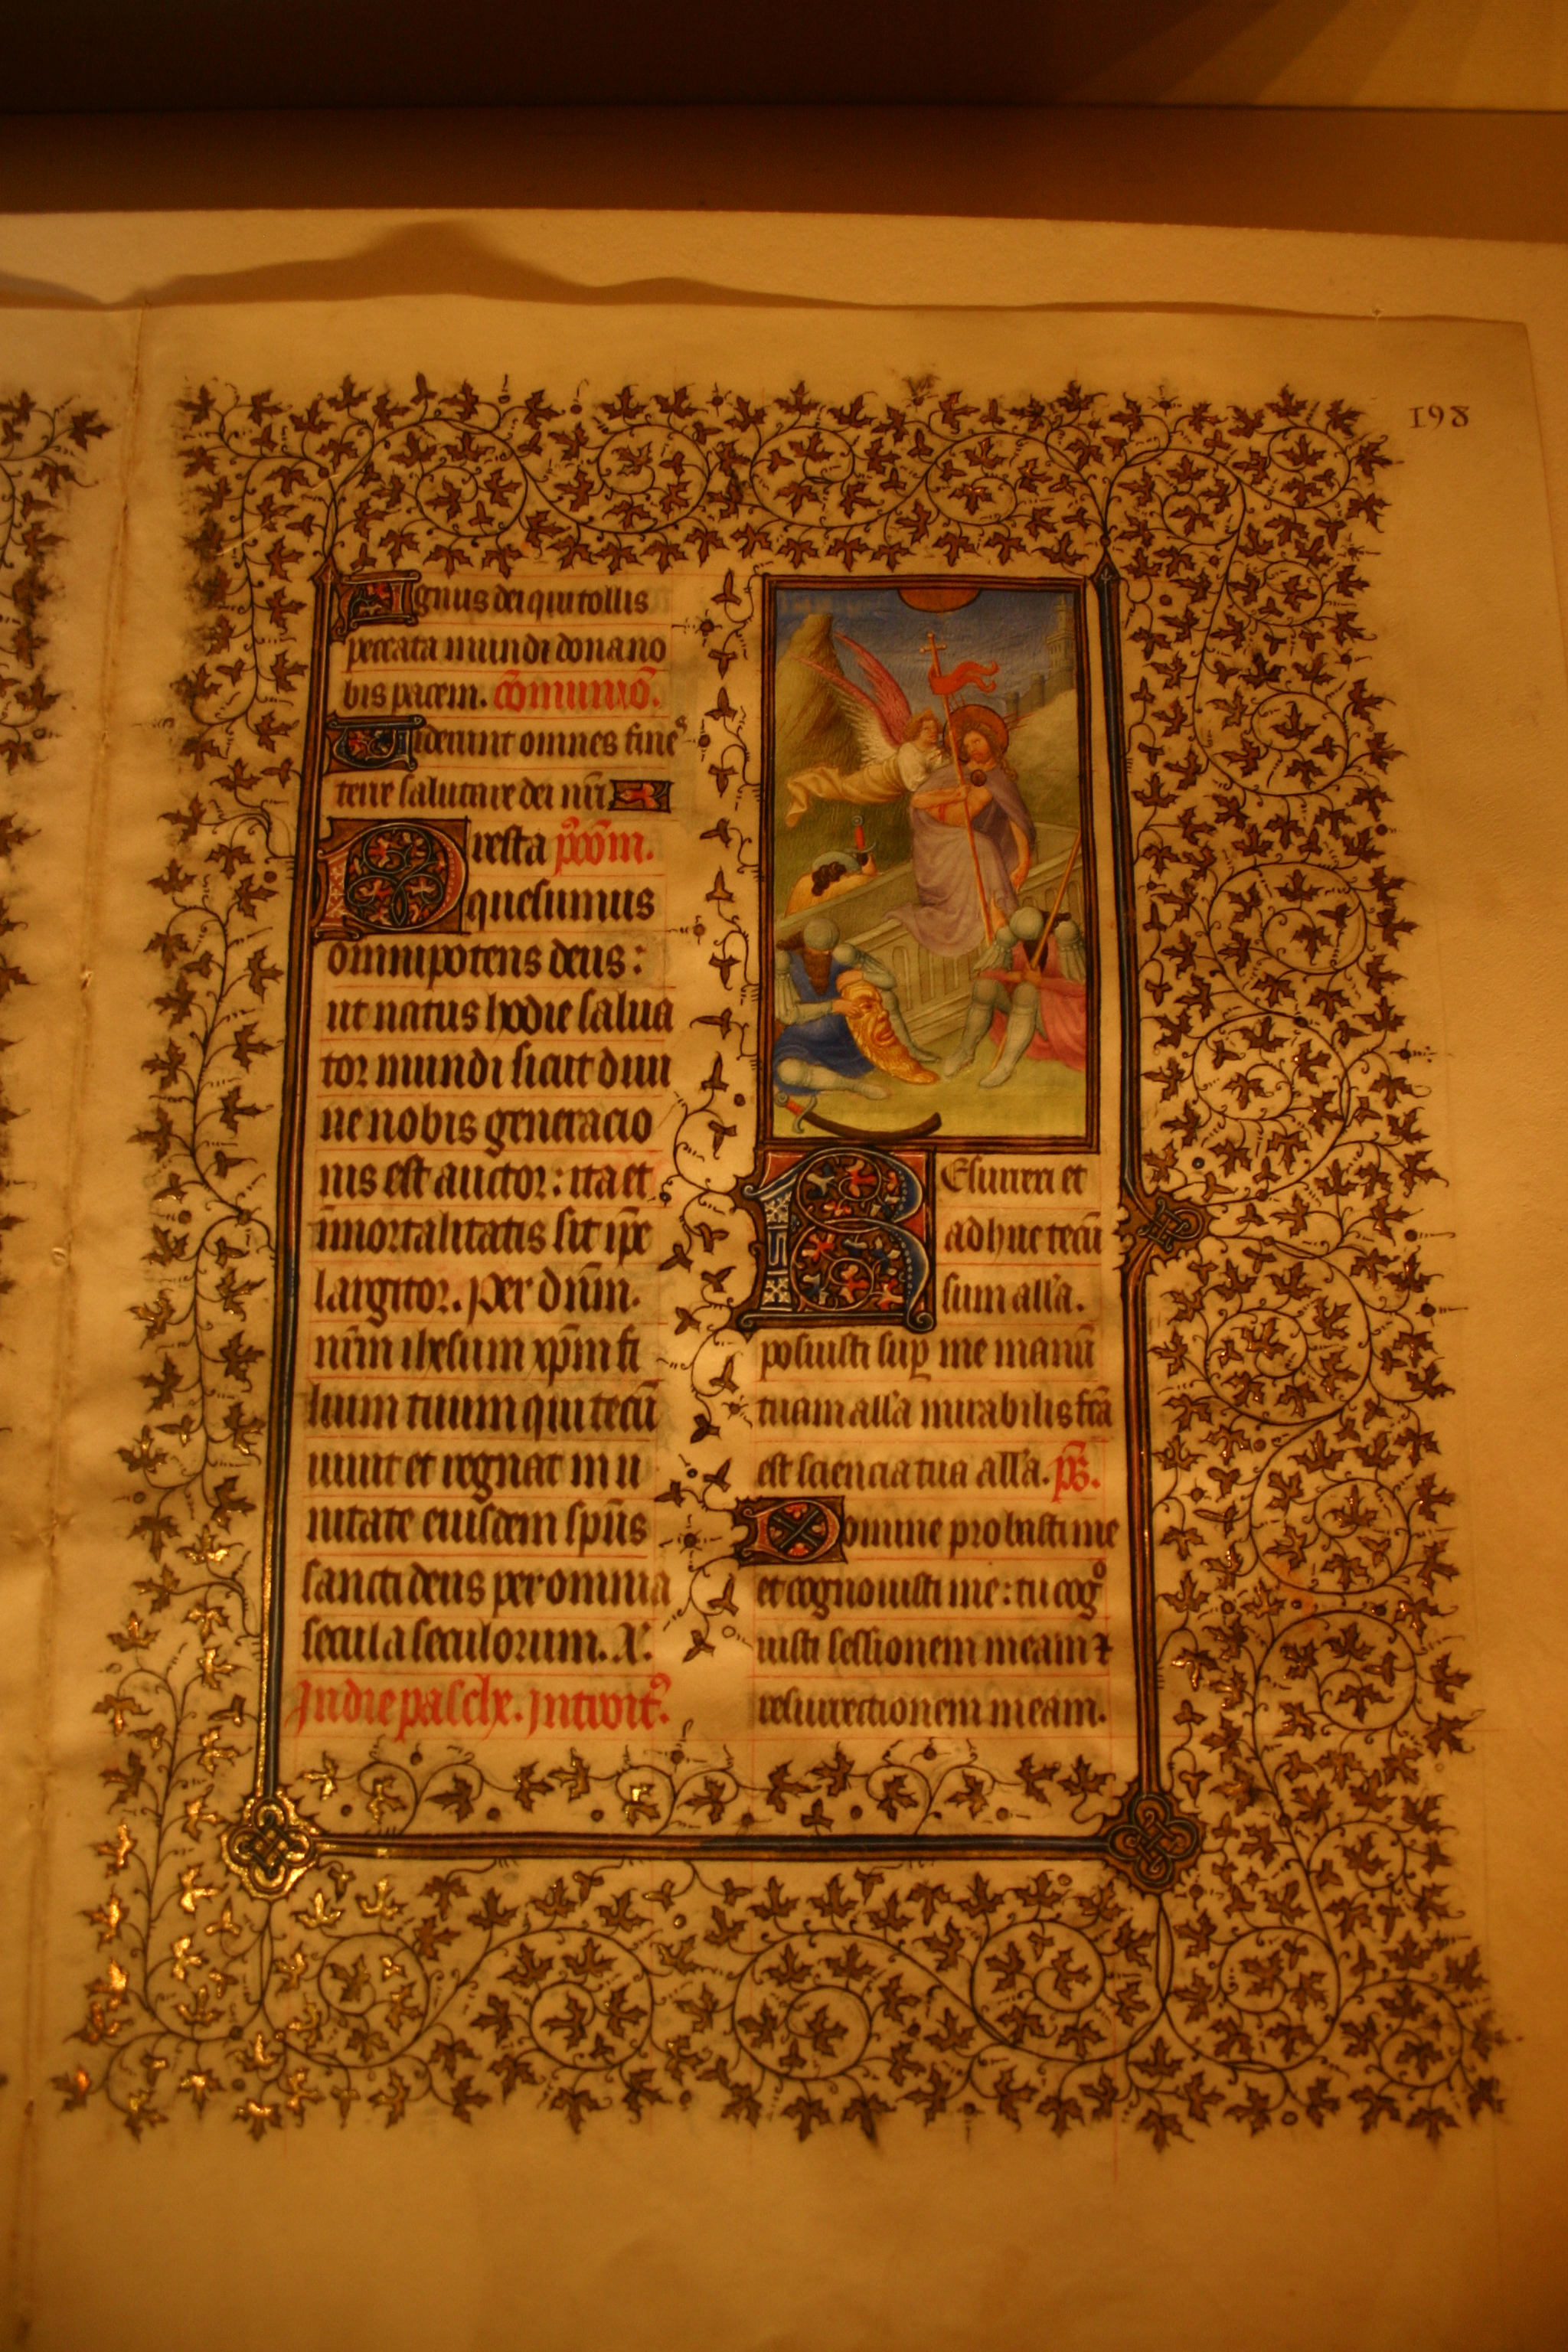 198
Agnus dei qui tollis
peccata mundi dona no
bis pacem. cōmunio.
Uiderunt omnes fines
terre salutare dei nr̄i
Presta pꝰcōm.
quesumus
omnipotens deus:
ut natus hodie salua
tor mundi sicut diui
ne nobis generacio
nis est auctor: ita et
īmortalitatis sit ip̄e
largitor. Per dn̄m.
nr̄m ihesum xp̄m fi
lium tuum qui tecū
uiuit et regnat in u
nitate eiusdem sp̄us
sancti deus per omnia
secula seculorum. A.
In die pasche. Introitꝰ.
Resurrexi et
adhuc tecū
sum all'a.
posuisti suꝑ me manū
tuam all'a mirabilis fc̄a
est sciencia tua all'a. ps̄.
Domine probasti me
et cognouisti me: tu cogº
uisti sessionem meam ⁊
resurrectionem meam.